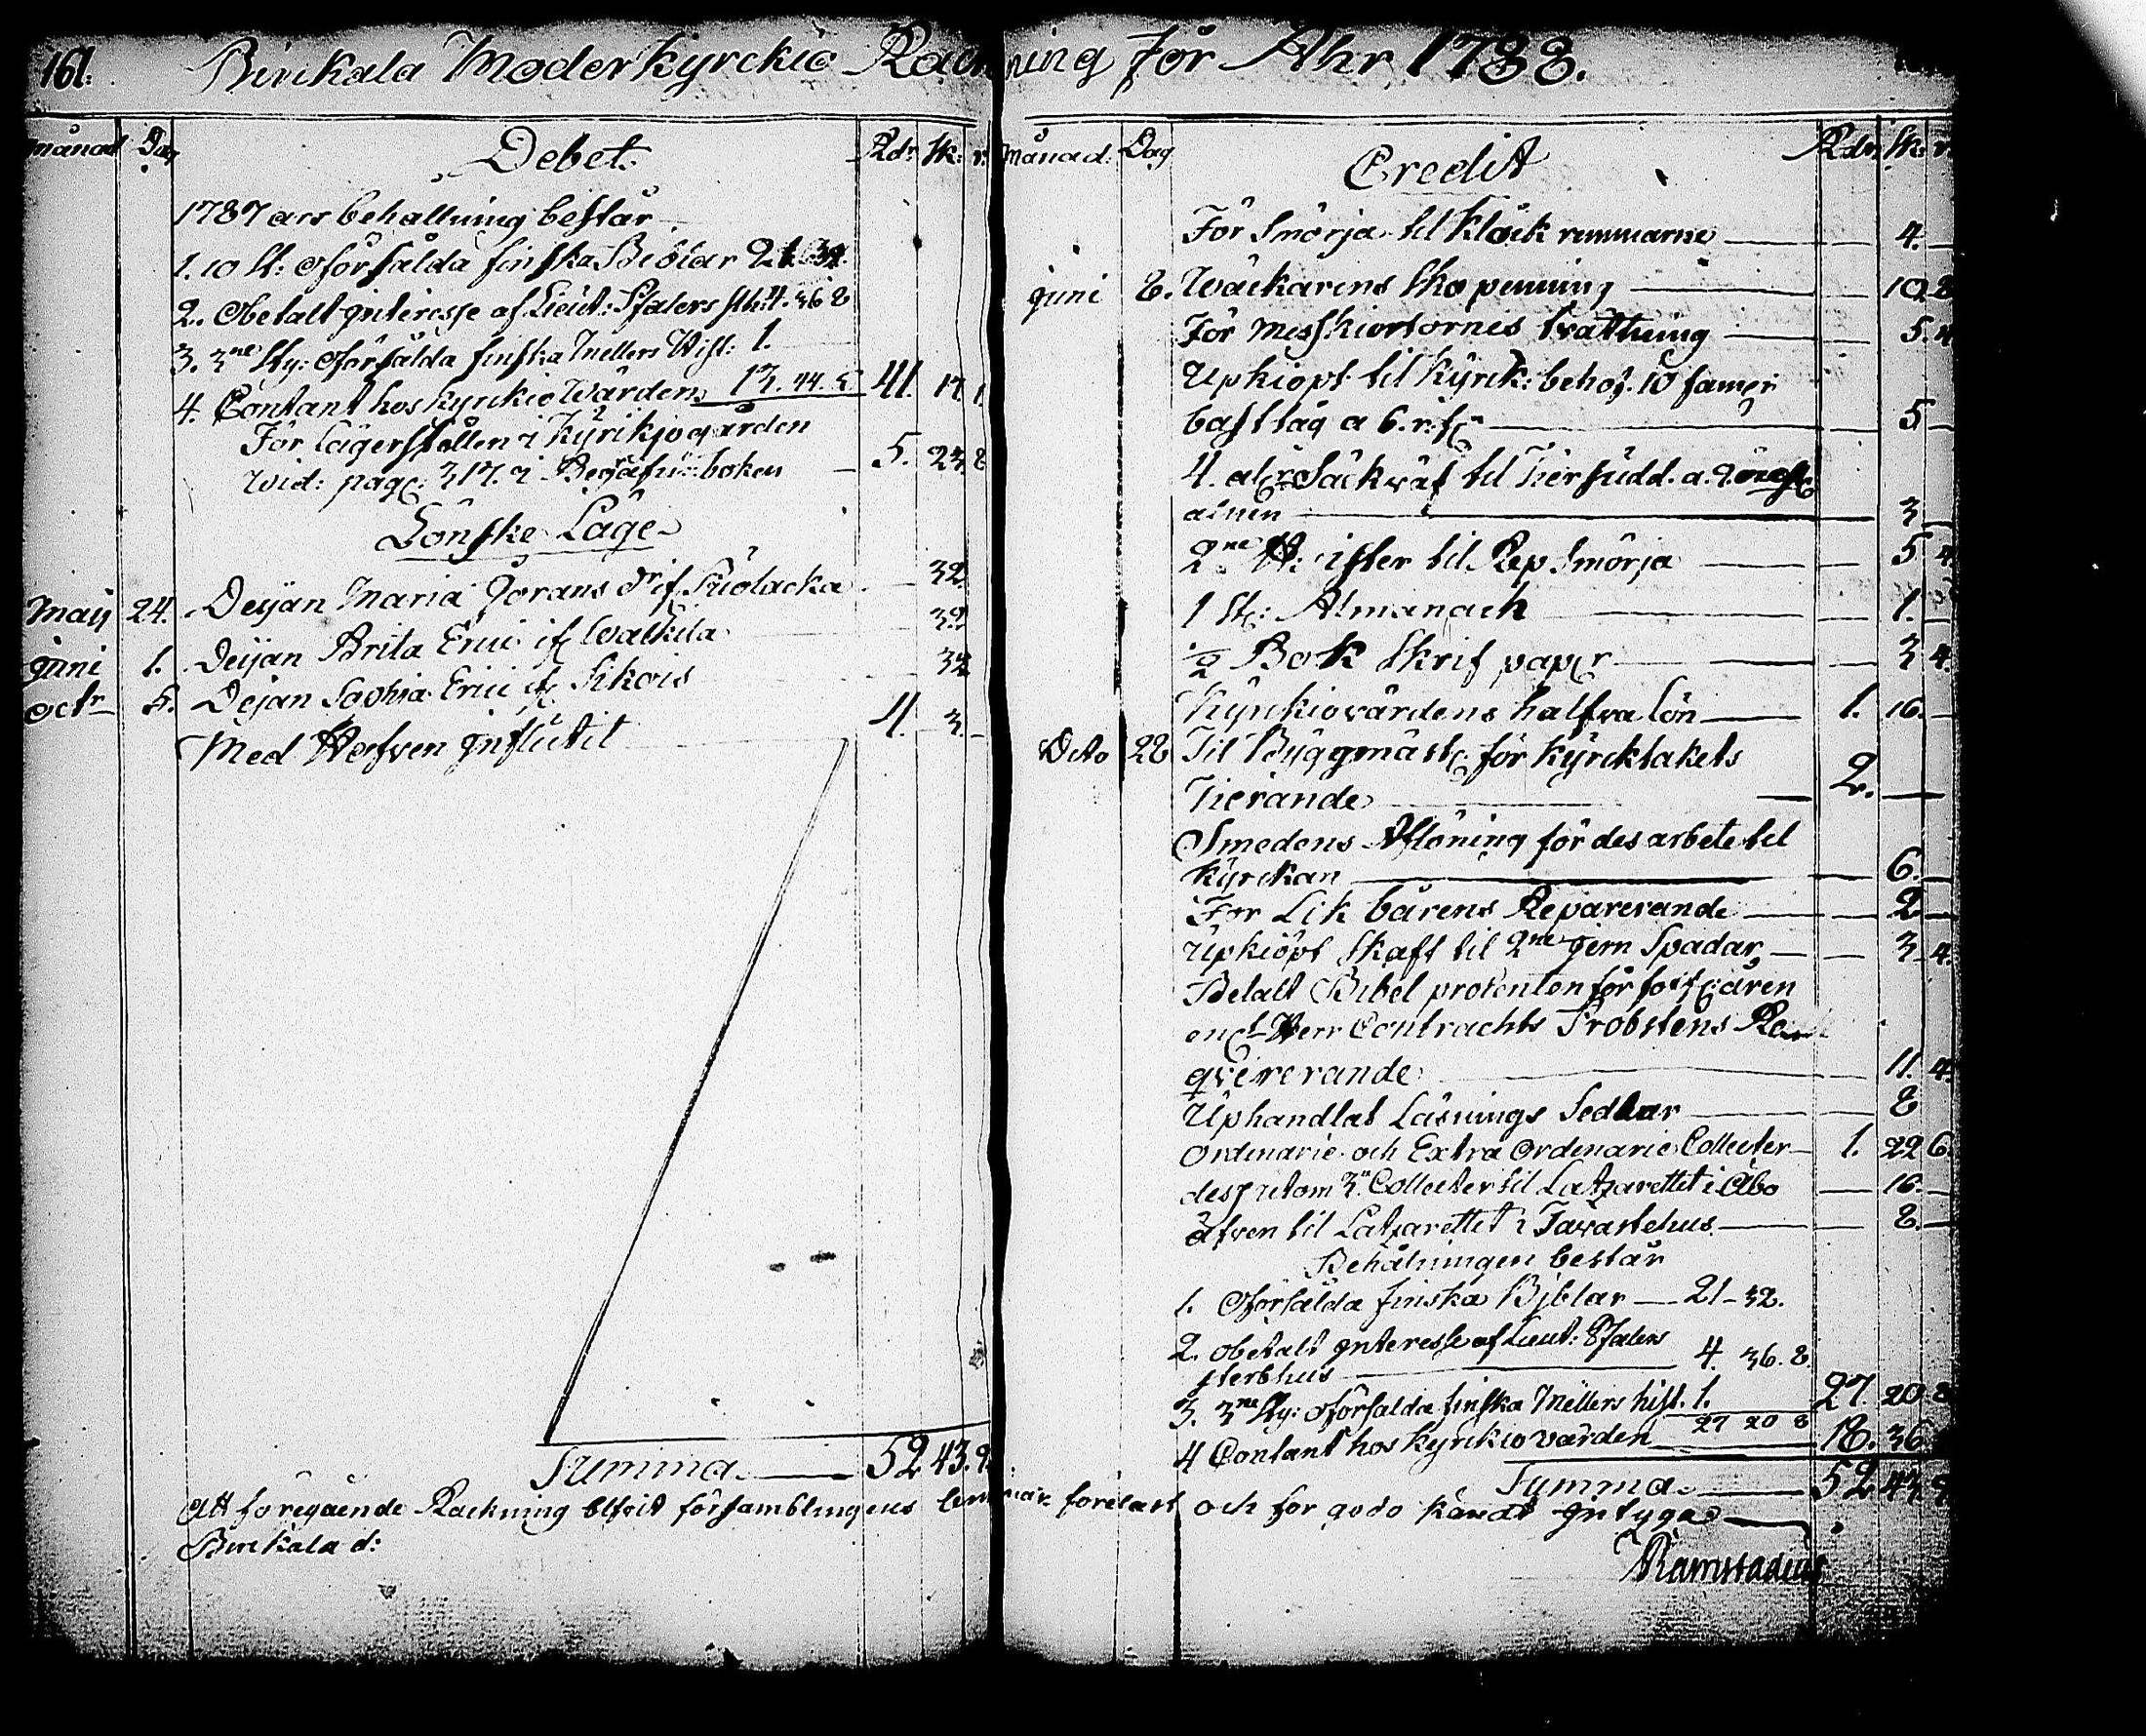 161.
Birikala Moder Kyrckio Räckning för Ahr 1788.
månad Dag Debet. Rdr sk: r:
1787 ars behallning bestar
1. 10 st: oförsålda finska Biblar 21. 32.
2. Obetalt interesse af Lieut: Stalers stbh: 4. 36 8
3. 3ne sty: oförsålda finska Mellers Hist: 1.
4. Contant hos kyrckio Wärden 13. 44. 5 41. 17. 1.
För lägerställen i Kyrikjogården
wid: pag: 317. i Begrafn: boken 5. 23 8
Lönske Läge
Maij 24. Deijan Maria Jörans dr if 32
juni 1. Deijan Brita Erici if Walkila 32
octr 5. Dejan Sophia Erici if Sikois 32
Med Hafven influtit 4. 3.
Summa 52 43. 9
månad: Dag Credit Rdr sk: r.
För Smörja til Klåck remmarne 4.
juni 8. Wäckarens Sko penning 10 8
För messkiortornes twättning 5. 4
Upkiöpt til Kyrik: behof. 10 famer
bast tåg a 6. r: st 5
4. al: Säckväf til
alnen 3
2ne ℔: ister til Rep Smörja 5 4.
1 st: Almanach 1.
1/2 Bok Skrif paper 3 4.
Kyrckiovärdens halfva lön 1. 16.
Octo 28 Til Byggmäst: för kyrcktakets
Tierande 2.
Smedens Aflöning för des arbete til
Kyrckan 6.
För Lik bårens Reparerande 2
Upkiöpt Skaft til 2ne jern Spadar 3 4.
Betalt Bibel procenten för åren
enl: Herr Contrachts Probstens Re
qvirerande 11. 4.
Uphandlat Läsnings Sedlar 8
Ordinarie och Extra Ordenarie Collecter 1. 22 6.
desjutom 3n Collecter til Latzarettet i Åbo 16.
äfven til Latzarettet i Tavastehus 8.
Behålningen består
1. Oförsålda finska Bjblar 21 - 32.
2. obetalt interesse af Lieut: Stalers
sterbhus 4. 36. 8
3. 3ne sty: oförsålda finska Mellers hist. 1. 27. 20 8
27 20 8
4 Contant hos kyrckio värden 18. 36.
Summa 52 43 9
Att foregående Räckning blfvit församblingens lemmar förelast och för godo kändt intygas
Birikala d:
Ramstadius